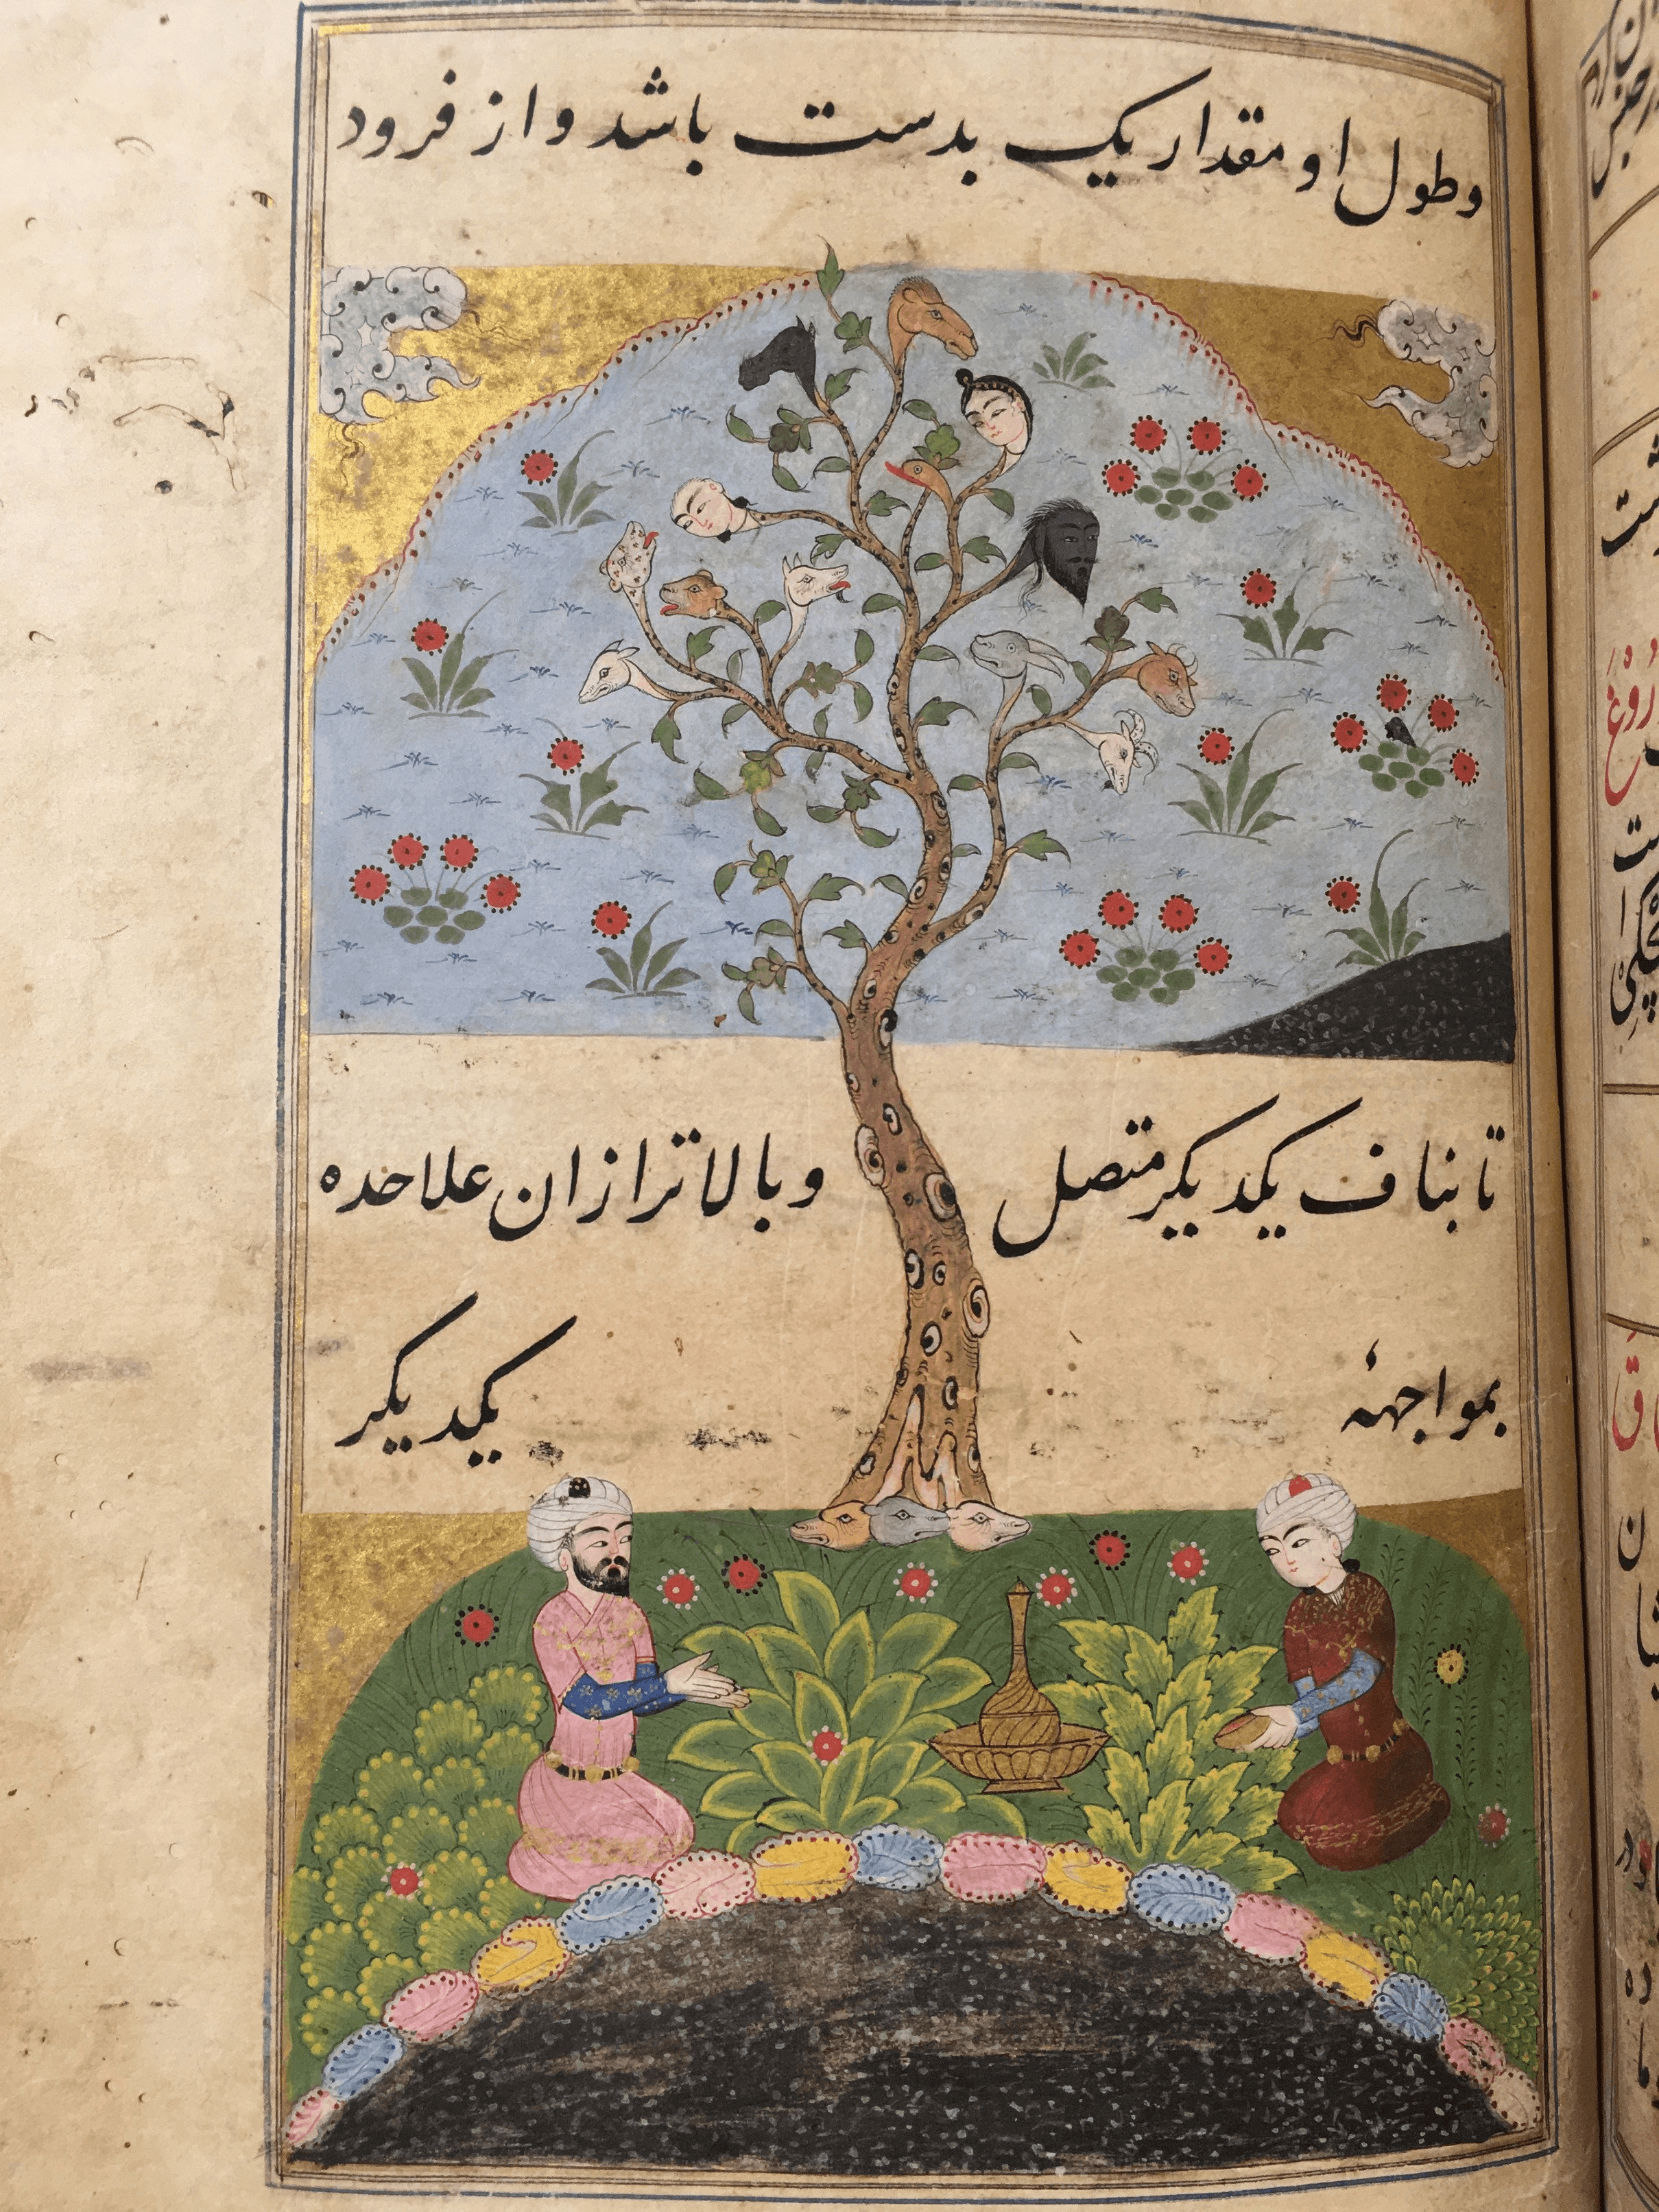 وطول او مقدار یک بدست باشد و از فرود
تا بناف یکدیکر متصل وبالاتر ازان علاحده
بمواجههٔ یکدیکر